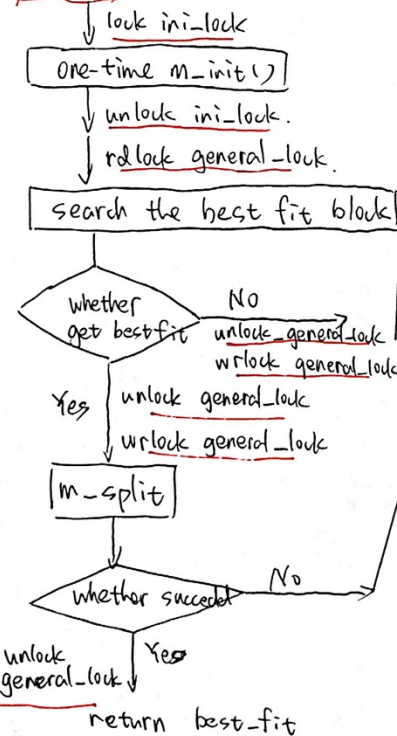 lock ini_lock
one-time m_init()
unlock ini_lock.
rdlock general_lock.
search the best fit block
whether
get bestfit
No
unlock_general_lock
wrlock general_lock
Yes
unlock general_lock
wrlock general_lock
m_split
whether succeded
No
unlock
general_lock
Yes
return best_fit